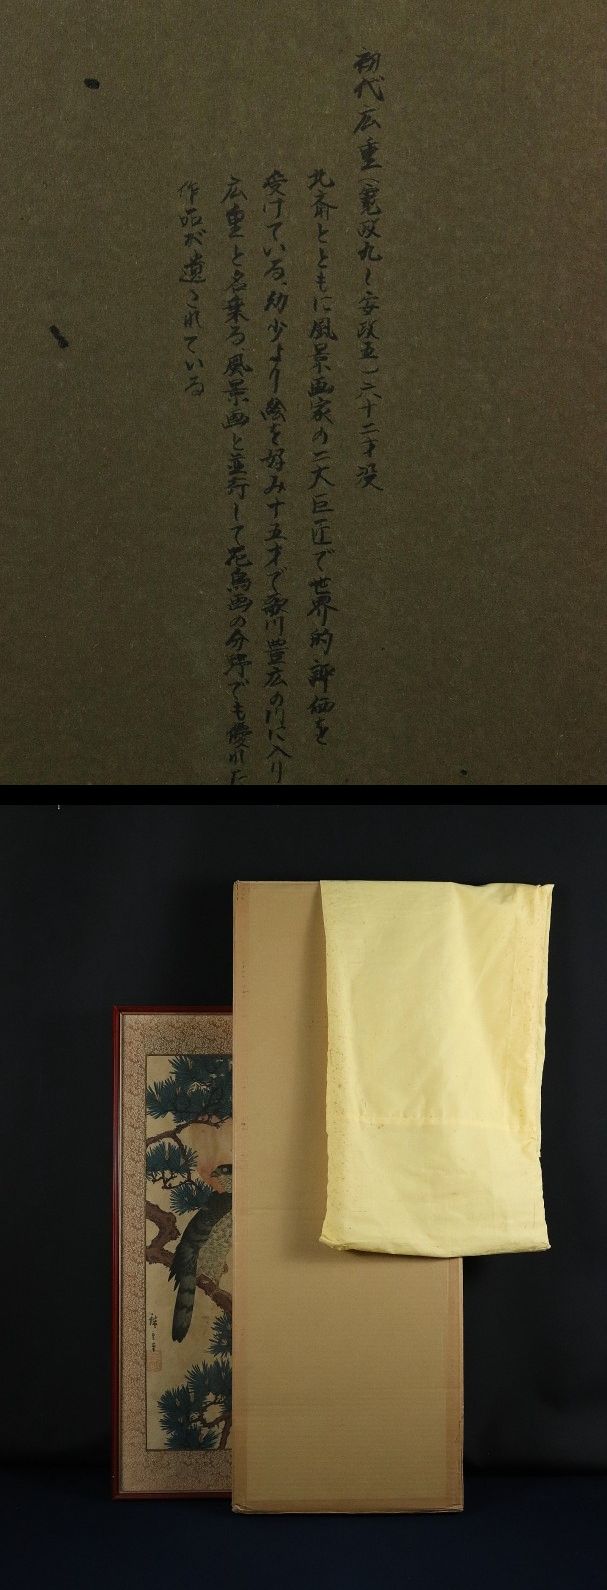 初代広重(寛政九〜安政五)六十二才没
北斎とともに風景画家の二大巨匠で世界的評価を
受けている、幼少より絵を好み十五才で歌川豊広の門に入り
広重と名乗る、風景画と並行して花鳥画の分野でも優れた
作品が遺されている